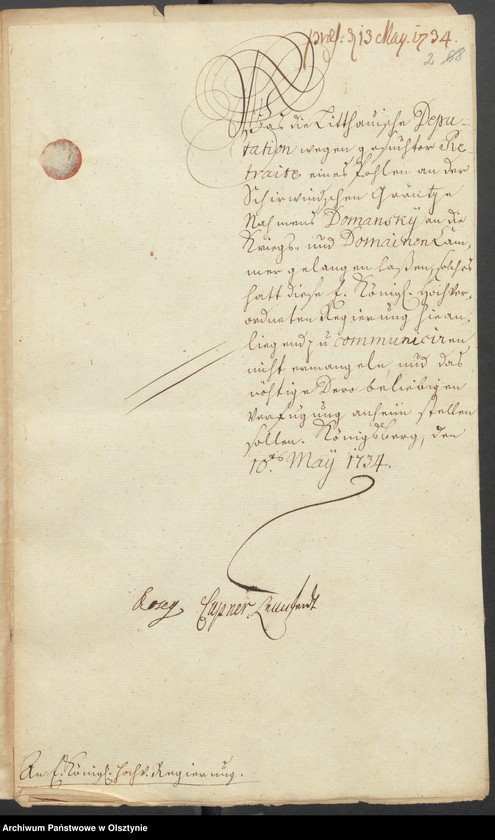 præs: d 13 May. 1734.
2
Was die Litthauische Depu-
tation wegen gesuchter Re-
traite eines Pohlen an der
Schirwindschen Gräntze
Nahmens Domansky an die
Kriegs- und Domainen Cam-
mer gelangen laßen, solches
hatt diese E. Königl. Hochver-
ordneten Regierung hiean-
liegend zu communiciren
nicht ermangeln, und das
nöthige Dero beliebigen
Verfügung anheim stellen
sollen. Königsberg, den
10ten May 1734.
An E. Königl. Hochv. Regierung.
Archiwum Państwowe w Olsztynie